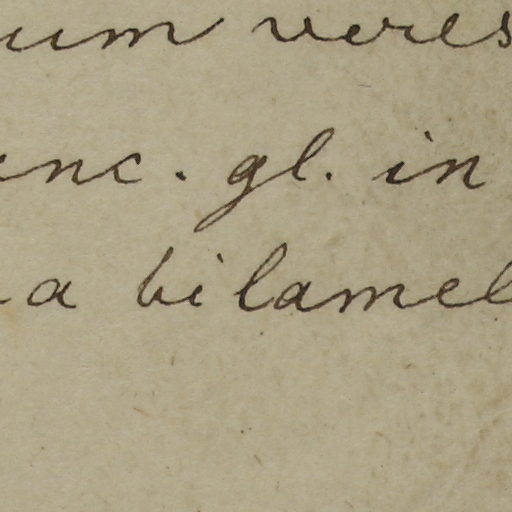 um veres
nc. gl. in
a bilamel